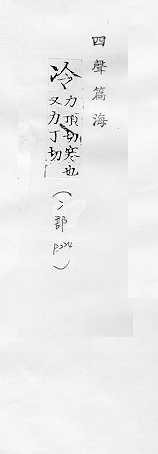 四聲篇海
冷
力頂切寒也
又力丁切
(冫部
p224)